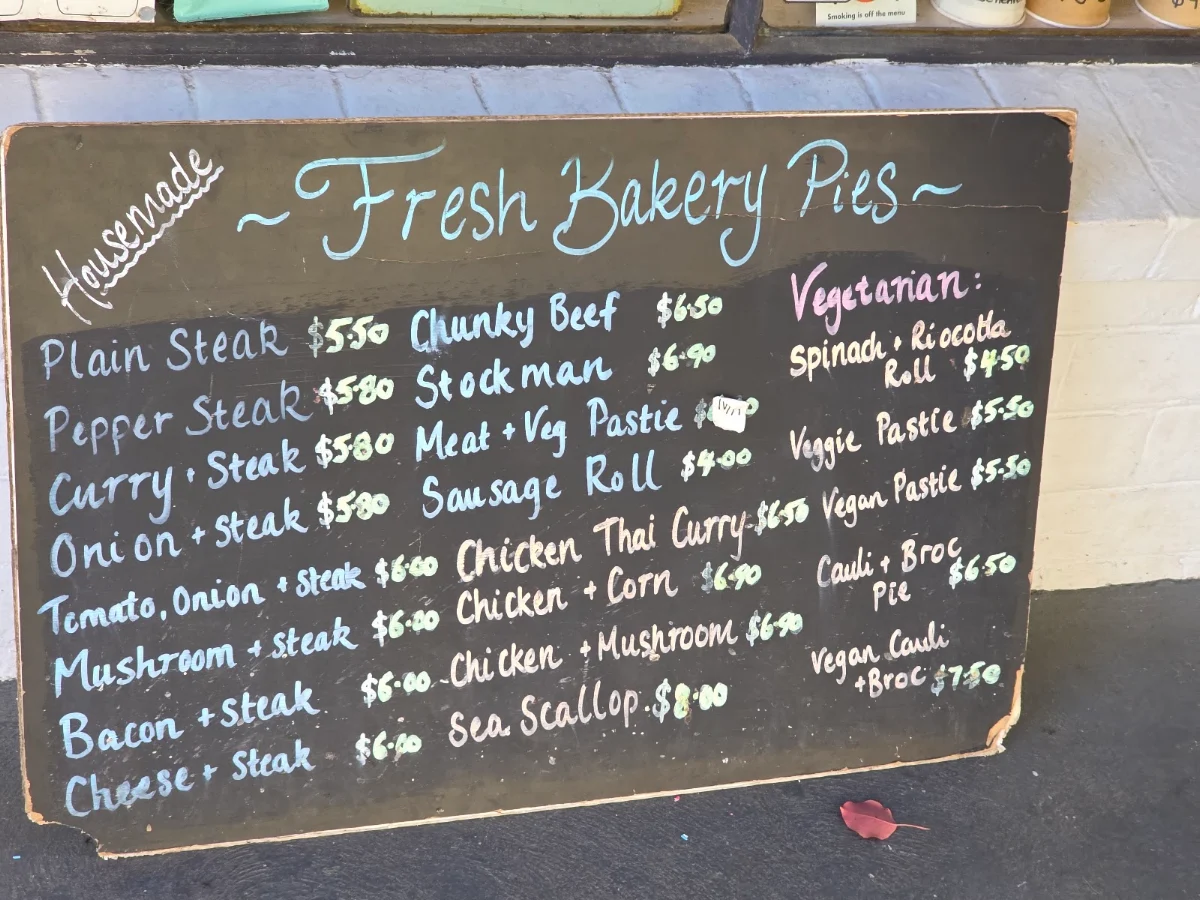 Smoking is off the menu
Housemade
~ Fresh Bakery Pies ~
Plain Steak $5.50
Pepper Steak $5.80
Curry + Steak $5.80
Onion + Steak $5.80
Tomato, Onion + Steak $6.00
Mushroom + Steak $6.00
Bacon + Steak $6.00
Cheese + Steak $6.00
Chunky Beef $6.50
Stockman $6.90
Meat + Veg Pastie
Sausage Roll $4.00
Chicken Thai Curry $6.50
Chicken + Corn $6.90
Chicken + Mushroom $6.90
Sea Scallop $8.00
Vegetarian:
Spinach + Riocotta
Roll $4.50
Veggie Pastie $5.50
Vegan Pastie $5.50
Cauli + Broc
Pie $6.50
Vegan Cauli
+ Broc $7.50